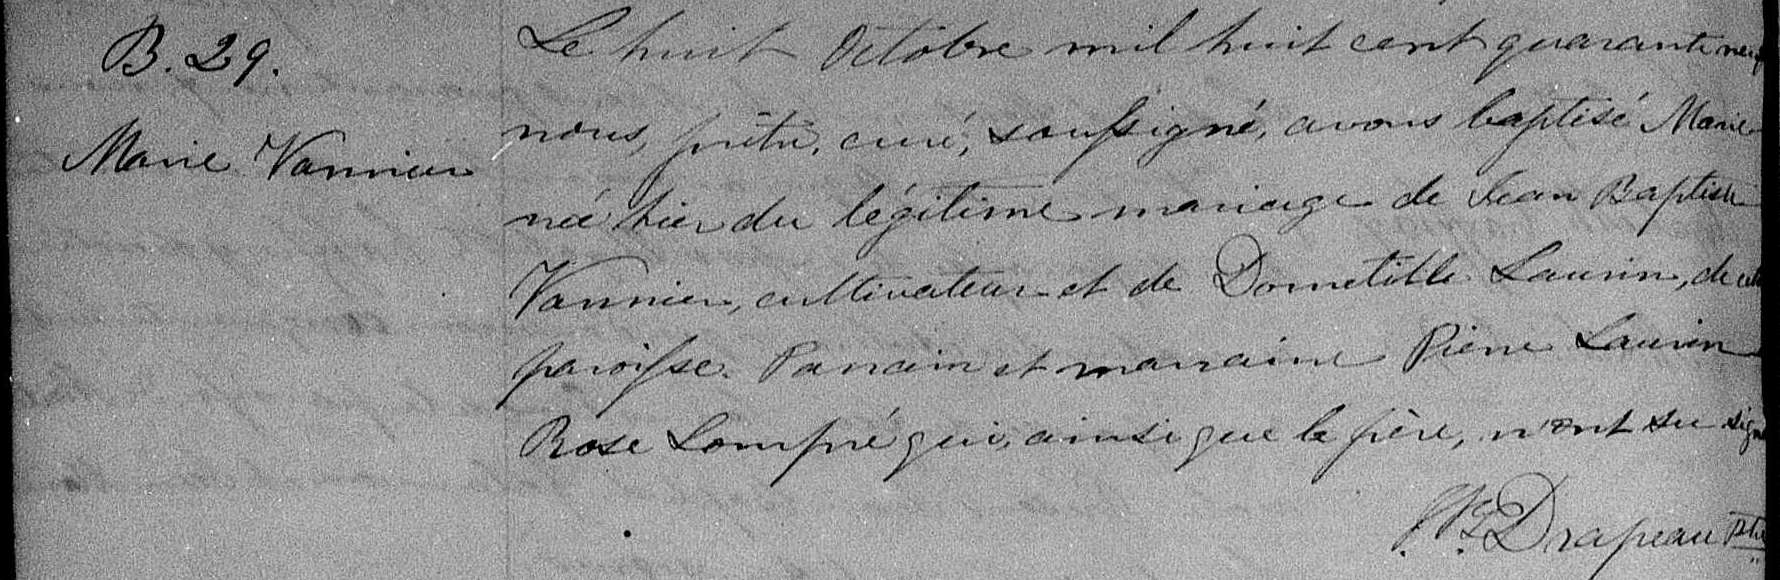 B. 29.
Marie Vannier
Le huit Octobre mil huit cent quarante neuf
nous, prêtre, curé, soussigné, avons baptisé Marie
née hier du légitime mariage de Jean Baptiste
Vannier, cultivateur et de Dometille Laurin, de cette
paroisse. Parrain et marraine Pierre Laurin
Rose Lompré qui, ainsi que le père, n'ont su signer
Drapeau Ptre